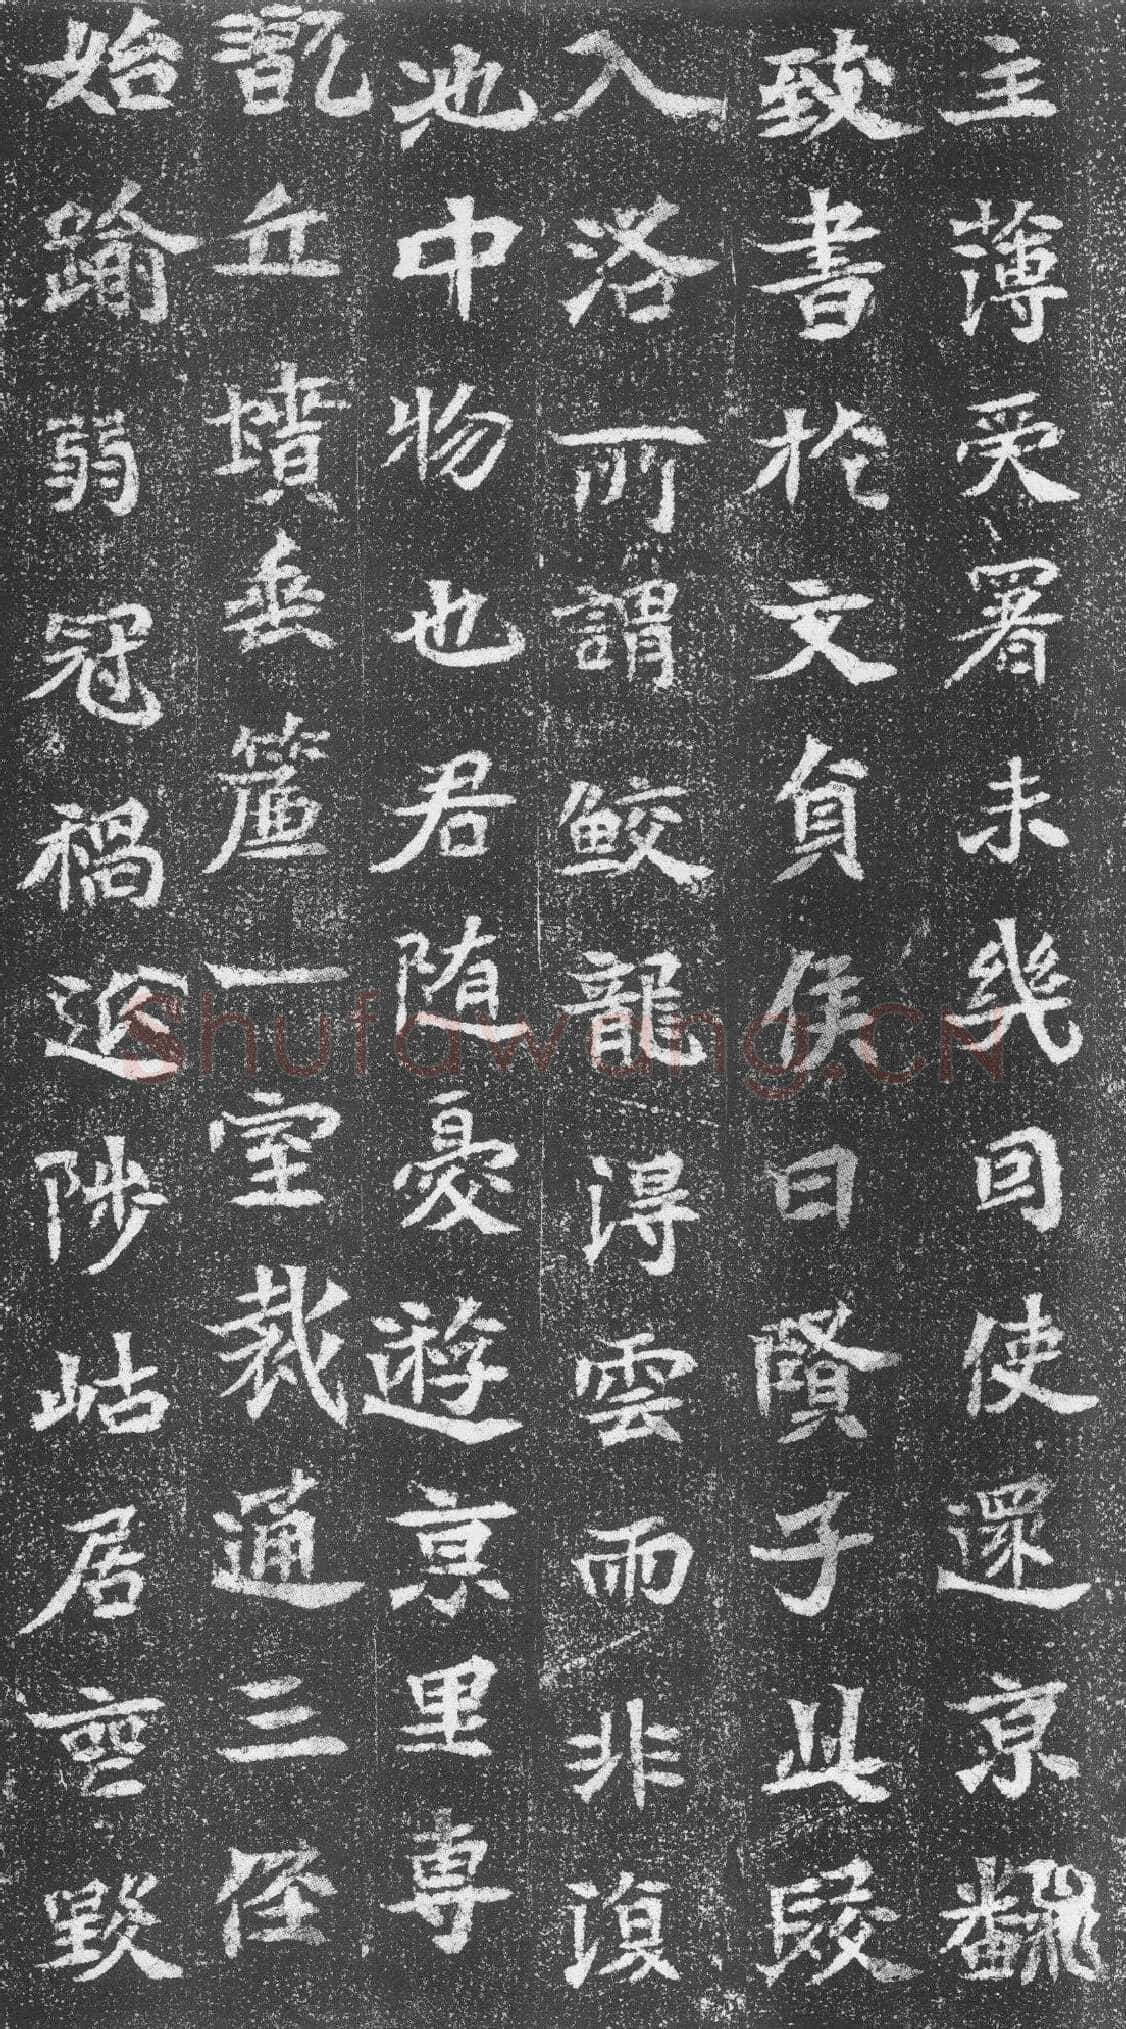 主薄受署未幾囙使還京翻
致書於文貞侯曰賢子此段
入洛所謂鮫龍得雲雨非復
池中物也君随憂遊京里專
翫丘墳垂簾一室裁通三徑
始踰弱冠禍延陟岵居喪毀
Shufawang.CN